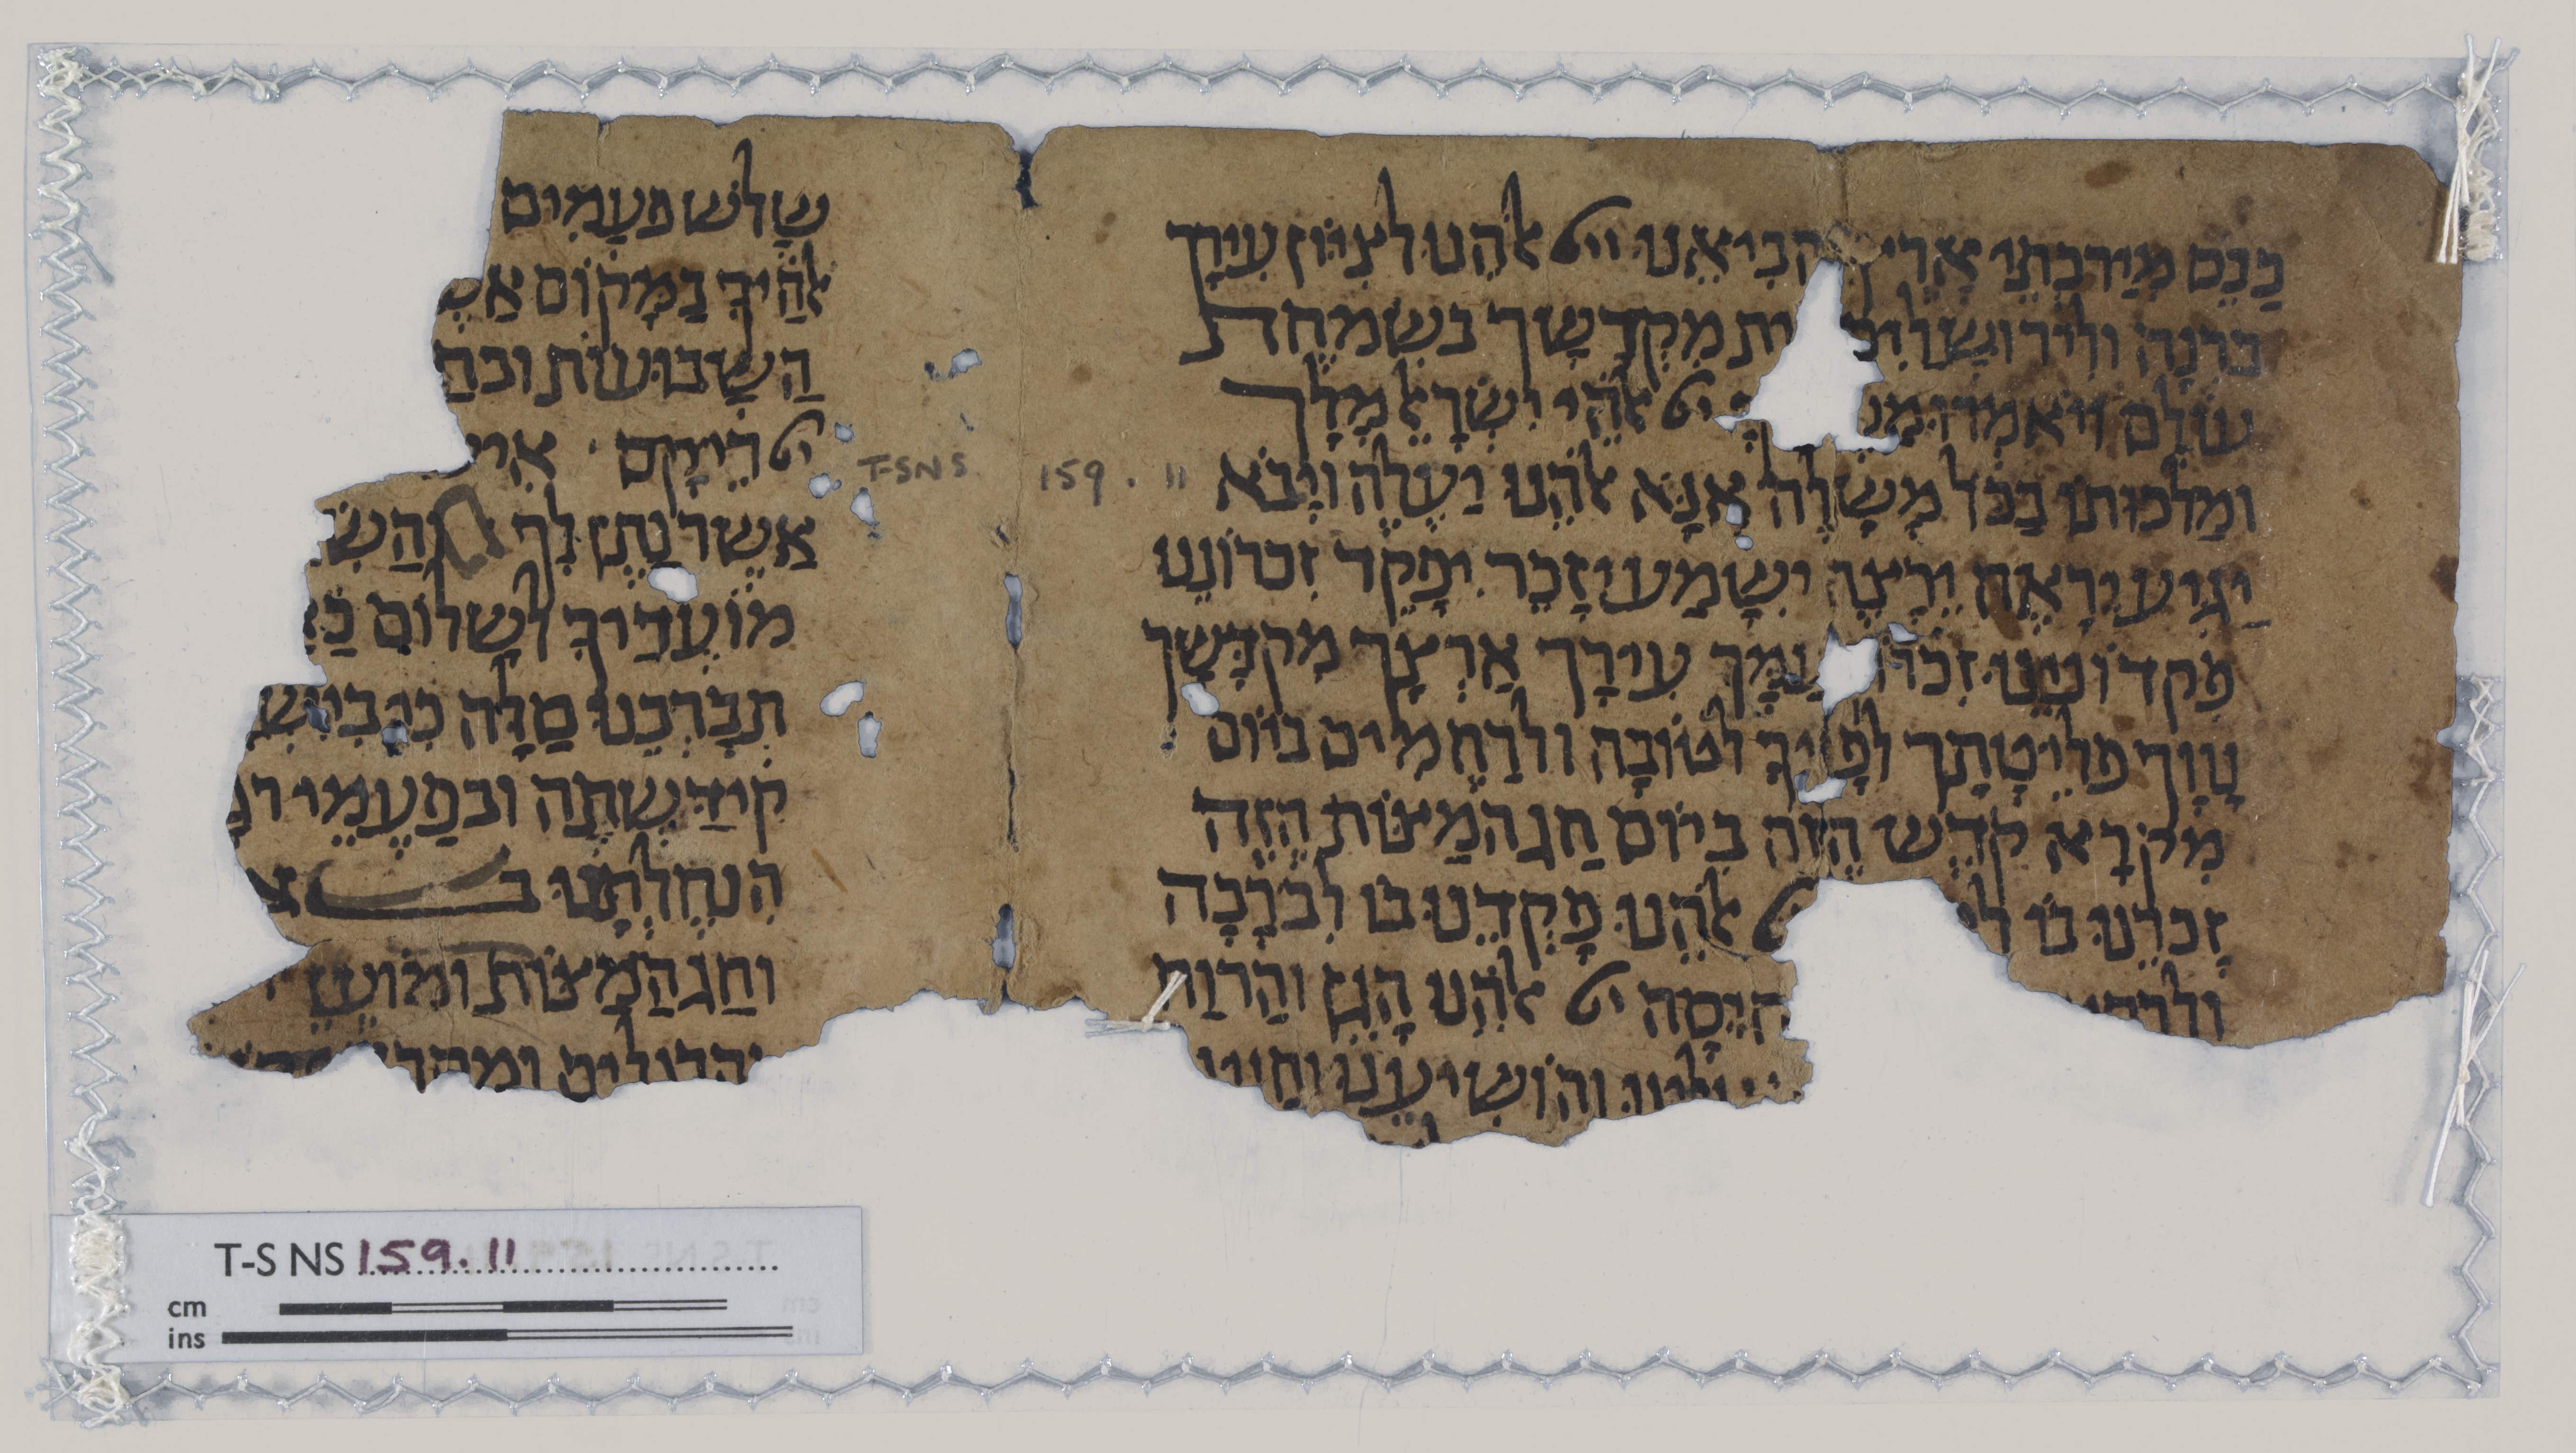 כַנֵס מִירכְתֵי אָרֶץ הבִיאֵנו ייי אלהֵנו לצִיון עִירָך
ברנָה ולִירושָלִים ית מִקְדָשָך בשִמְחת
עולָם ויאמרו ייי אלהֵי יִשְרָאֵל מָלָך
ומַלכותו בַכל מָשָלָה אָנָא אלהֵנו יַעֲלֶה ויָבא
יַגִיע יִרָאֶה יֵרָצֶה יִשָמַע יזָכֵר יִפָקֵד זִכרונֵנו
פִקדונֵינו זִכרון עַמָך עִירָך אַרְצָך מִקדָשָך
נָוָך פלֵיטָתָך לפָנֶיךָ לטובָה ולרַחֲמִים ביום
מִקרָא קדֶש הֶזֶה ביום חַג המַצות הֶזֶה
זָכרֵנו בו ייי אלהֵנו פָקְדֵנו בו לִברָכָה
היֵסָה ייי אלהֵנו הָגֵן והַרוַח
עלינו והושִיעֵנו
שָלש פעַמִים
אלהֶיךָ בַמָקום אַשֶ
הַשָבועות ובחַ
ייי רֵיקָם
אַשֶר נָתַן לָך
מועֲדֵיךָ לשָלום כַא
תְבָרְכֵנו סַלָה כִי בְיִש
קידַשְתָה ובפַעֲמֵי
הִנחַלְתָנו ב
וחַג הַמַצות ומועֲדֵ
הרגלים
T-S NS 159.11
T-S NS 159.11
cm
ins